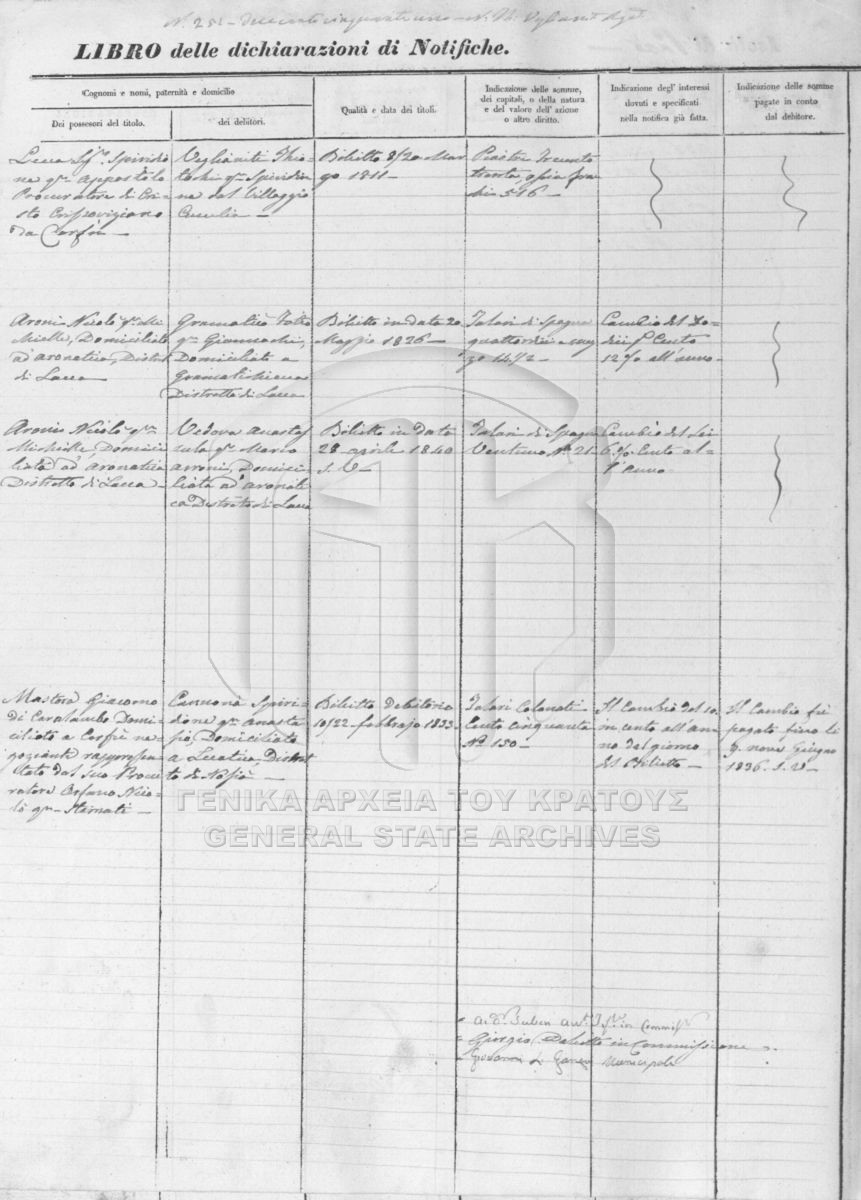 N. 251 – Duecento cinquantuno –
LIBRO delle dichiarazioni di Notifiche.
Cognomi e nomi, paternità e domicilio
Dei possesori del titolo.
dei debitori.
Qualità e data dei titoli.
Indicazione delle somme,
dei capitali, o della natura
e del valore dell'azione
o altro diritto.
Indicazione degl' interessi
dovuti e specificati
nella notifica già fatta.
Indicazione delle somme
pagate in conto
dal debitore.
Lecca Spiridio
ne qm Appostolo
Procuratore di Cri-
sto
da Corfù —
ne dal Villaggio
Bilietto 8/20 Mar
zo 1811 —
Piastri Trecento
trenta, ossia fra
516 —
Aroni Nicolò qm Mi
chielle, Domiciliato
ad aronatica, Distret
di Lecca
qm Giannachi,
Domiciliato a
Distretto di Lecca
Bilietto in data 20
Maggio 1826 —
Talari di Spagna
quattordici e mez
zo 14 1/2 —
Cambio del Do-
dici p Cento
12 % all'anno
Aroni Nicolò qm
Michielle, Domici
liato ad aronatica
Distretto di Lecca —
Vedova Anastas
sula qm Marco
arroni, Domici
liata ad aronati
ca Distretto di Lecca
Bilietto in Data
28 aprile 1840
S. V —
Talari di Spagna
Ventuno No 21 –
Cambio del Sei
6 % Cento al-
l'anno
Mastora Giacomo
di Caralambo Domi
ciliato a Corfù ne-
goziante rappresen
tato dal suo Procu
ratore Orfano Nico-
lò qm
Spiri-
dione qm Anasta
sio, Domiciliato
a Distret
to di
Bilietto Debitorio
10/22 febbrajo 1833
Talari Colonati
Cento cinquanta
No 150 —
Il Cambio del 10
in cento all'an-
no dal giorno
del Bilietto —
Il Cambio fù
pagato fino li
9 nove Giugno
1836. S. V —
ΓΕΝΙΚΑ ΑΡΧΕΙΑ ΤΟΥ ΚΡΑΤΟΥΣ
GENERAL STATE ARCHIVES
Giorgio in Commissione
Municipale